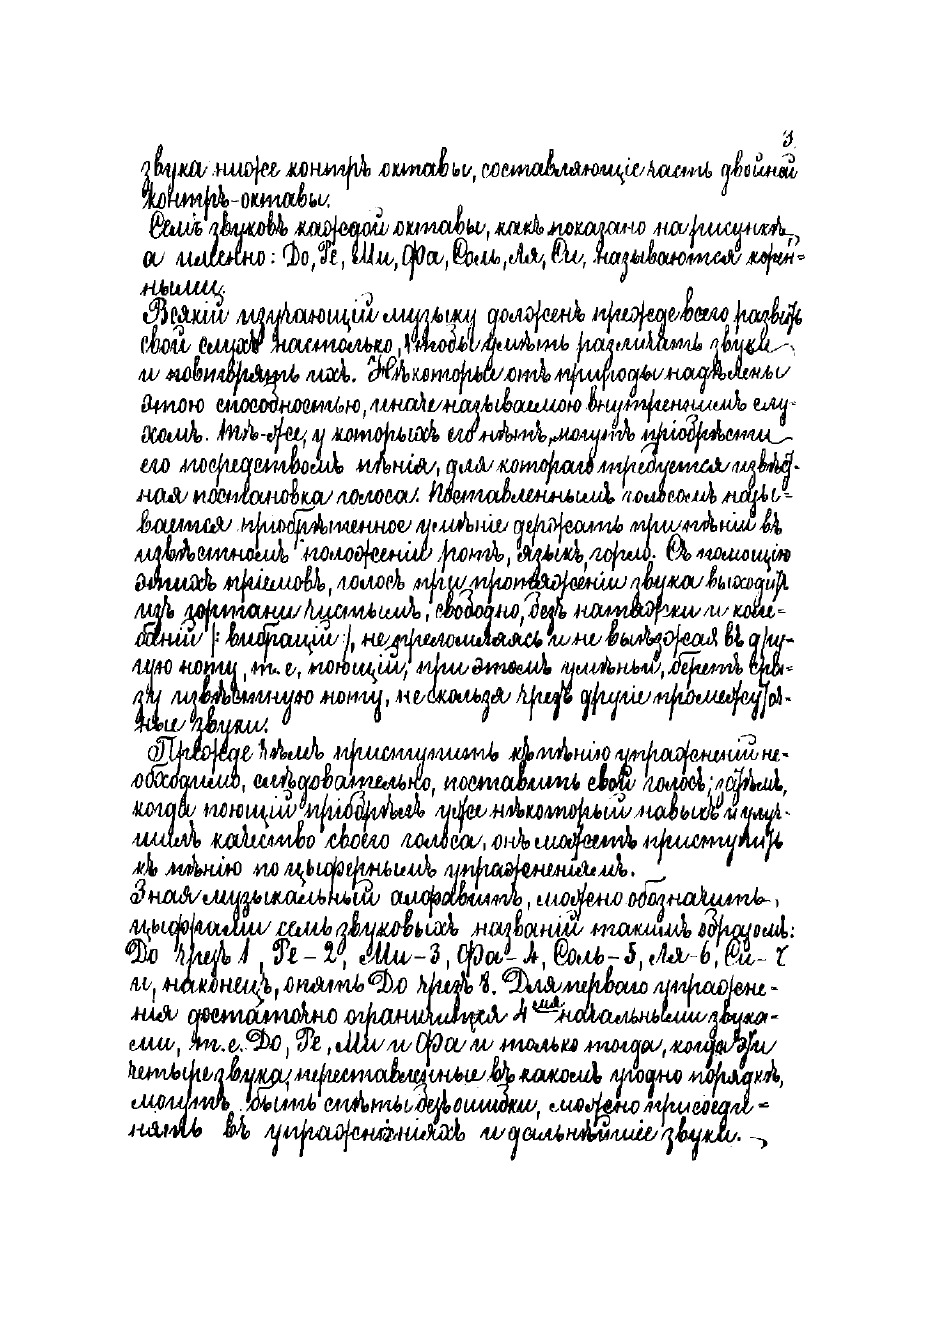 3
звука ниже контръ октавы, составляющіе часть двойной
контръ-октавы.
Семь звуковъ каждой октавы, какъ показано на рисункѣ,
а именно: До, Ре, Ми, Фа, Соль, Ля, Си, называются корен=
ными.
Всякій изучающій музыку долженъ прежде всего развить
свой слухъ настолько, чтобы умѣть различать звуки
и повторять ихъ. Нѣкоторые отъ природы надѣлены
этою способностью, иначе называемою внутреннимъ слу-
хомъ. Тѣ-же, у которыхъ его нѣтъ, могутъ пріобрѣсти
его посредствомъ пѣнія, для котораго требуется извѣст-
ная постановка голоса. Поставленнымъ голосомъ назы-
вается пріобрѣтенное умѣніе держать при пѣніи въ
извѣстномъ положеніи ротъ, языкъ, горло. Съ помощію
этихъ пріемовъ, голосъ при протяженіи звука выходитъ
изъ гортани чистымъ, свободно, безъ натяжки и коле-
баній /: вибрацій :/, не преломляясь и не выѣзжая въ дру-
гую ноту, т.е. поющій, при этомъ умѣньи, беретъ сра-
зу извѣстную ноту, не скользя чрезъ другіе промежуточ-
ные звуки.
Прежде чѣмъ приступить къ пѣнію упражненій не-
обходимо, слѣдовательно, поставить свой голосъ; затѣмъ,
когда поющій пріобрѣлъ уже нѣкоторый навыкъ и улуч-
шилъ качество своего голоса, онъ можетъ приступить
къ пѣнію по цыфернымъ упражненіямъ.
Зная музыкальный алфавитъ, можно обозначить
цыфрами семь звуковыхъ названій такимъ образомъ:
До чрезъ 1, Ре-2, Ми-3, Фа-4, Соль-5, Ля-6, Си-7
и, наконецъ, опять До чрезъ 8. Для перваго упражне-
нія достаточно ограничиться 4мя начальными звука-
ми, т.е. До, Ре, Ми и Фа и только тогда, когда эти
четыре звука, переставленные въ какомъ угодно порядкѣ,
могутъ быть спѣты безъ ошибки, можно присоеди=
нять въ упражненіяхъ и дальнѣйшіе звуки.